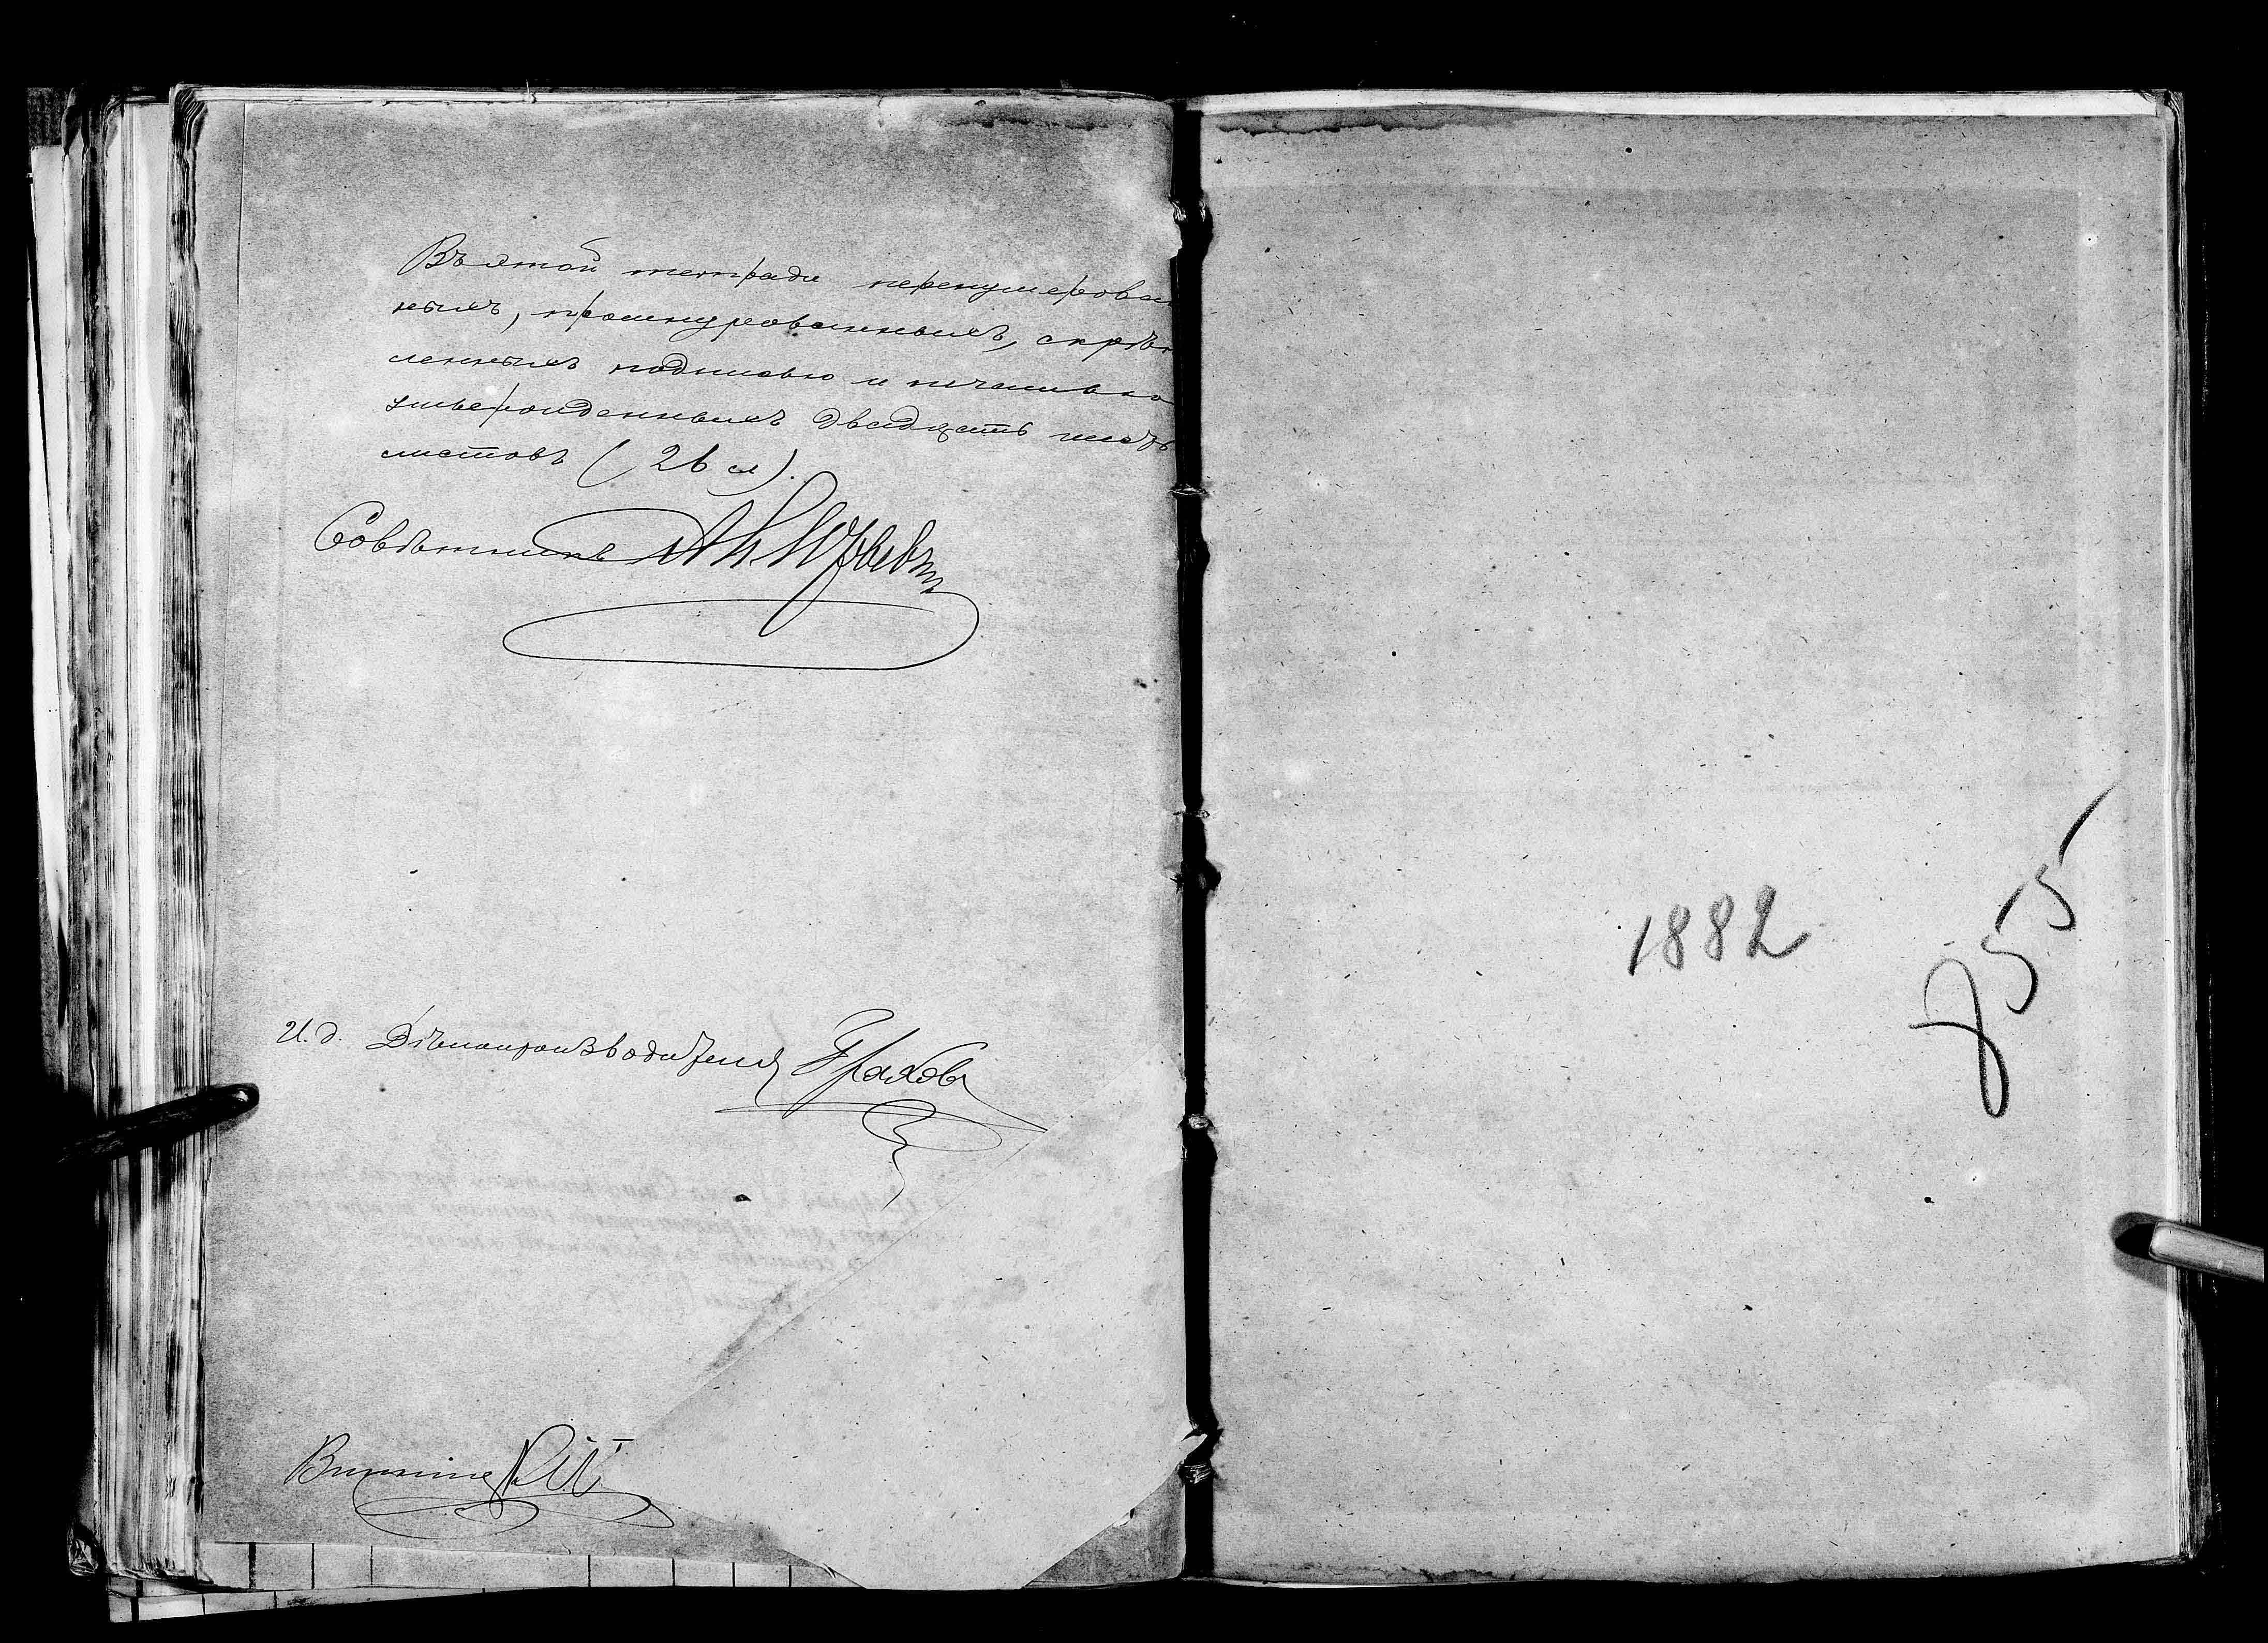 Въ этой тетради перенумерован
ныхъ, прошнурованныхъ, скрѣп
ленныхъ подписью и печатью
утвержденныхъ двадцать шесть
листовъ (26 л).
Совѣтникъ
И. д. Дѣлопроизводителя Граховъ
1882
755